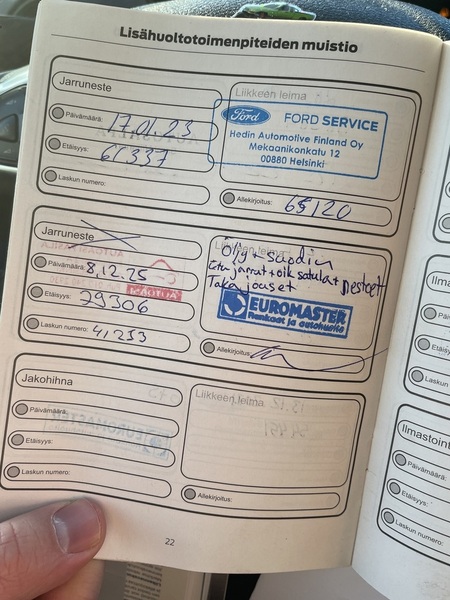 Lisähuoltotoimenpiteiden muistio
Jarruneste
Päivämäärä: 17.01.23
Etäisyys: 61337
Laskun numero:
Liikkeen leima
Ford FORD SERVICE
Hedin Automotive Finland Oy
Mekaanikonkatu 12
00880 Helsinki
Allekirjoitus: 65120
Jarruneste
Päivämäärä: 8.12.25
Etäisyys: 79306
Laskun numero: 41253
Liikkeen leima
Öljy + suodin
Etujarrut + satulat pesteet
Taka jouset
EUROMASTER
Renkaat ja autohuolto
Allekirjoitus:
Jakohihna
Päivämäärä:
Etäisyys:
Laskun numero:
Liikkeen leima
Allekirjoitus:
22
Ilma
Päiv
Etäisy
Lasku
Ilmastoint
Päivämäärä:
Etäisyys:
Laskun numero: